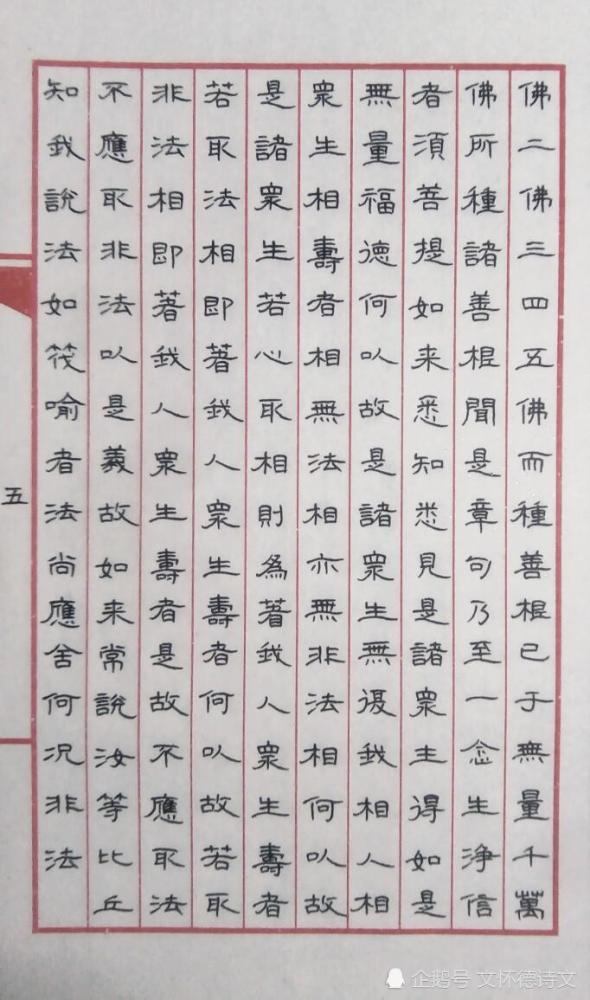 佛二佛三四五佛而種善根已于無量千萬
佛所種諸善根聞是章句乃至一念生淨信
者須菩提如来悉知悉見是諸衆生得如是
無量福德何以故是諸衆生無復我相人相
衆生相壽者相無法相亦無非法相何以故
是諸衆生若心取相則為著我人衆生壽者
若取法相即著我人衆生壽者何以故若取
非法相即著我人衆生壽者是故不應取法
不應取非法以是義故如来常說汝等比丘
知我說法如筏喻者法尚應舍何況非法
五
企鹅号 文怀德诗文